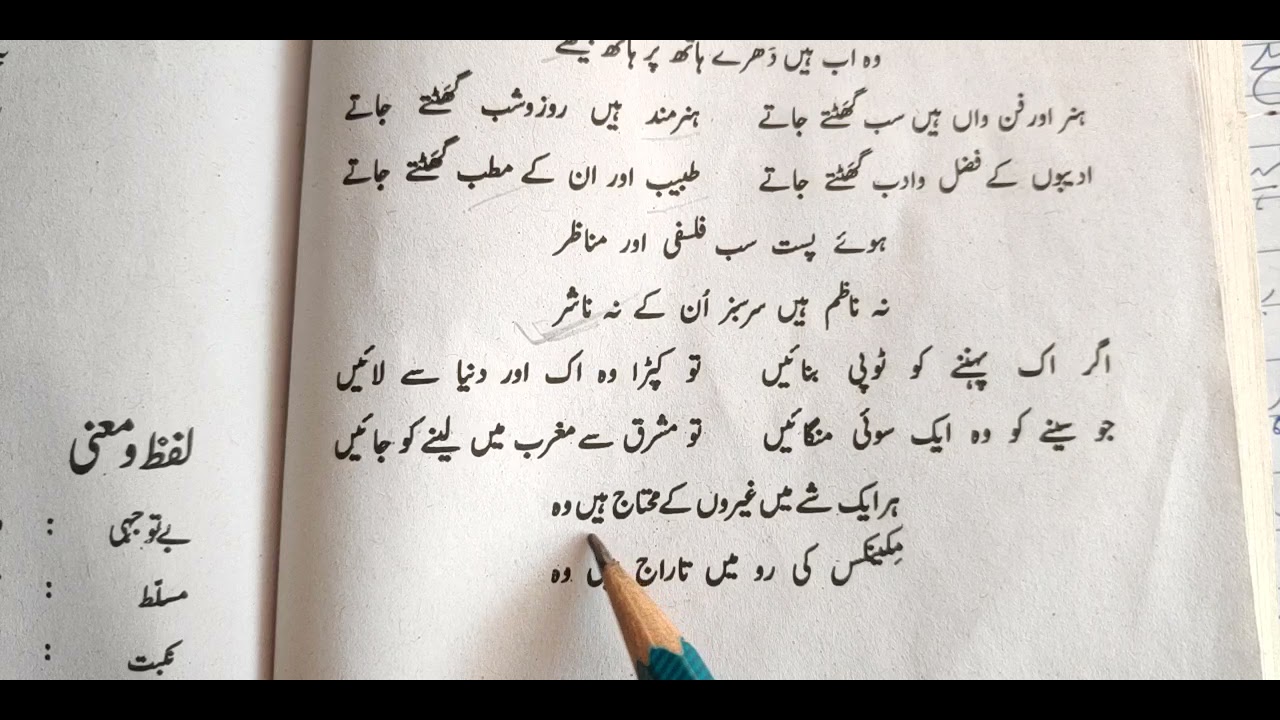 وہ اب ہیں دَھرے ہاتھ پر ہاتھ بیٹھے
ہنر اور فن واں ہیں سب گھَٹتے جاتے ہنرمند ہیں روز و شب گھَٹتے جاتے
ادیبوں کے فضل و ادب گھَٹتے جاتے طبیب اور ان کے مطب گھَٹتے جاتے
ہوئے پست سب فلسفی اور مناظر
نہ ناظم ہیں سرسبز اُن کے نہ ناشر
اگر اک پہننے کو ٹوپی بنائیں تو کپڑا وہ اک اور دنیا سے لائیں
جو سینے کو وہ ایک سوئی منگائیں تو مشرق سے مغرب میں لینے کو جائیں
ہر ایک شے میں غیروں کے محتاج ہیں وہ
مِکینکس کی رو میں تاراج وہ
لفظ و معنی
بے توجہی :
مسلّط :
نکبت :